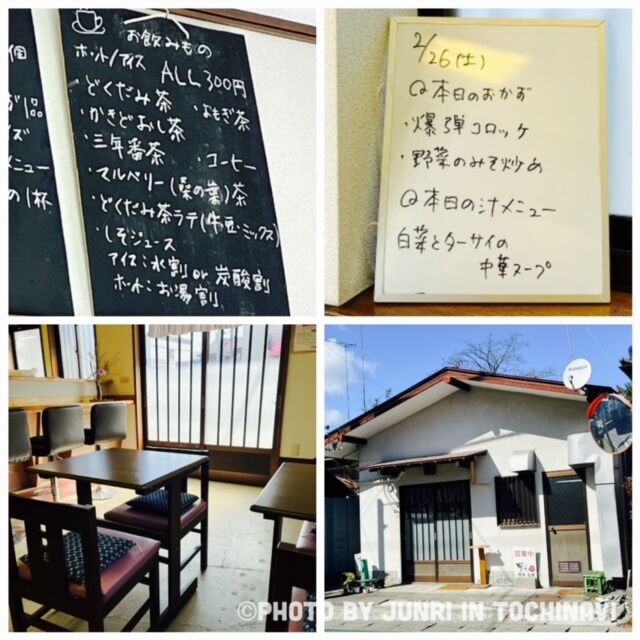 お飲みもの
ホット/アイス ALL 300円
・どくだみ茶 ・よもぎ茶
・かきどおし茶
・三年番茶 ・コーヒー
・マルベリー(桑の葉)茶
・どくだみ茶ラテ(牛・豆・ミックス)
・しそジュース
アイス:水割 or 炭酸割
ホット:お湯割
個
イズ
メニュー
の1杯
2/26(土)
◎本日のおかず
・爆弾コロッケ
・野菜のみそ炒め
◎本日の汁メニュー
白菜とターサイの
中華スープ
営業中
©PHOTO BY JUNRI IN TOCHINAVI